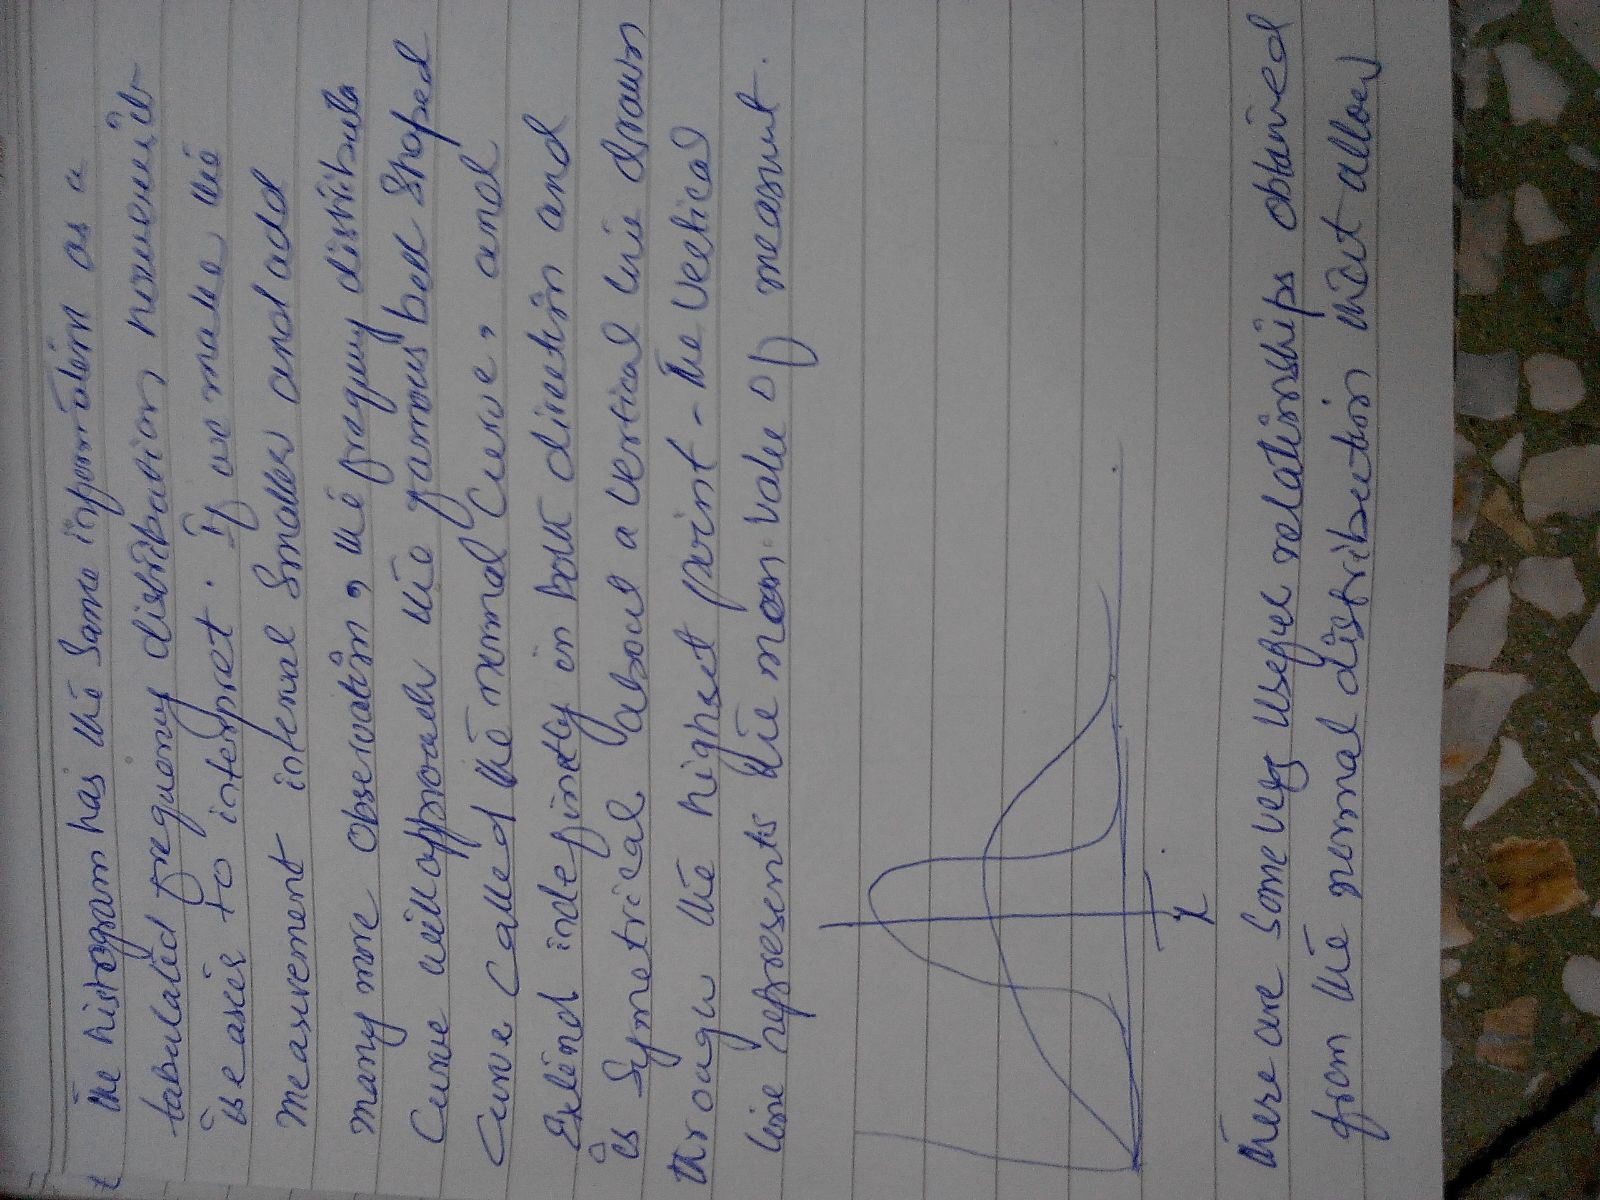 The histogram has the same information as a
tabulated frequency distribution however it
is easier to interpret. If we make the
measurement interval smaller and add
many more observation, the frequny distributa
Curve will approach the famous bell shaped
Curve called the normal Curve, and
Extend indefinetly in both direction and
is Symetrical about a vertical line drawn
through the highset point - The vertical
line represents the mean value of
x̄
There are some very useful relationships obtained
from the normal distribution that allow